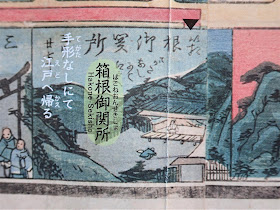 箱根御関所
はこねおんせきしょ
箱根御関所
Hakone Sekisho
てがた
手形なしにて
江戸へ帰る